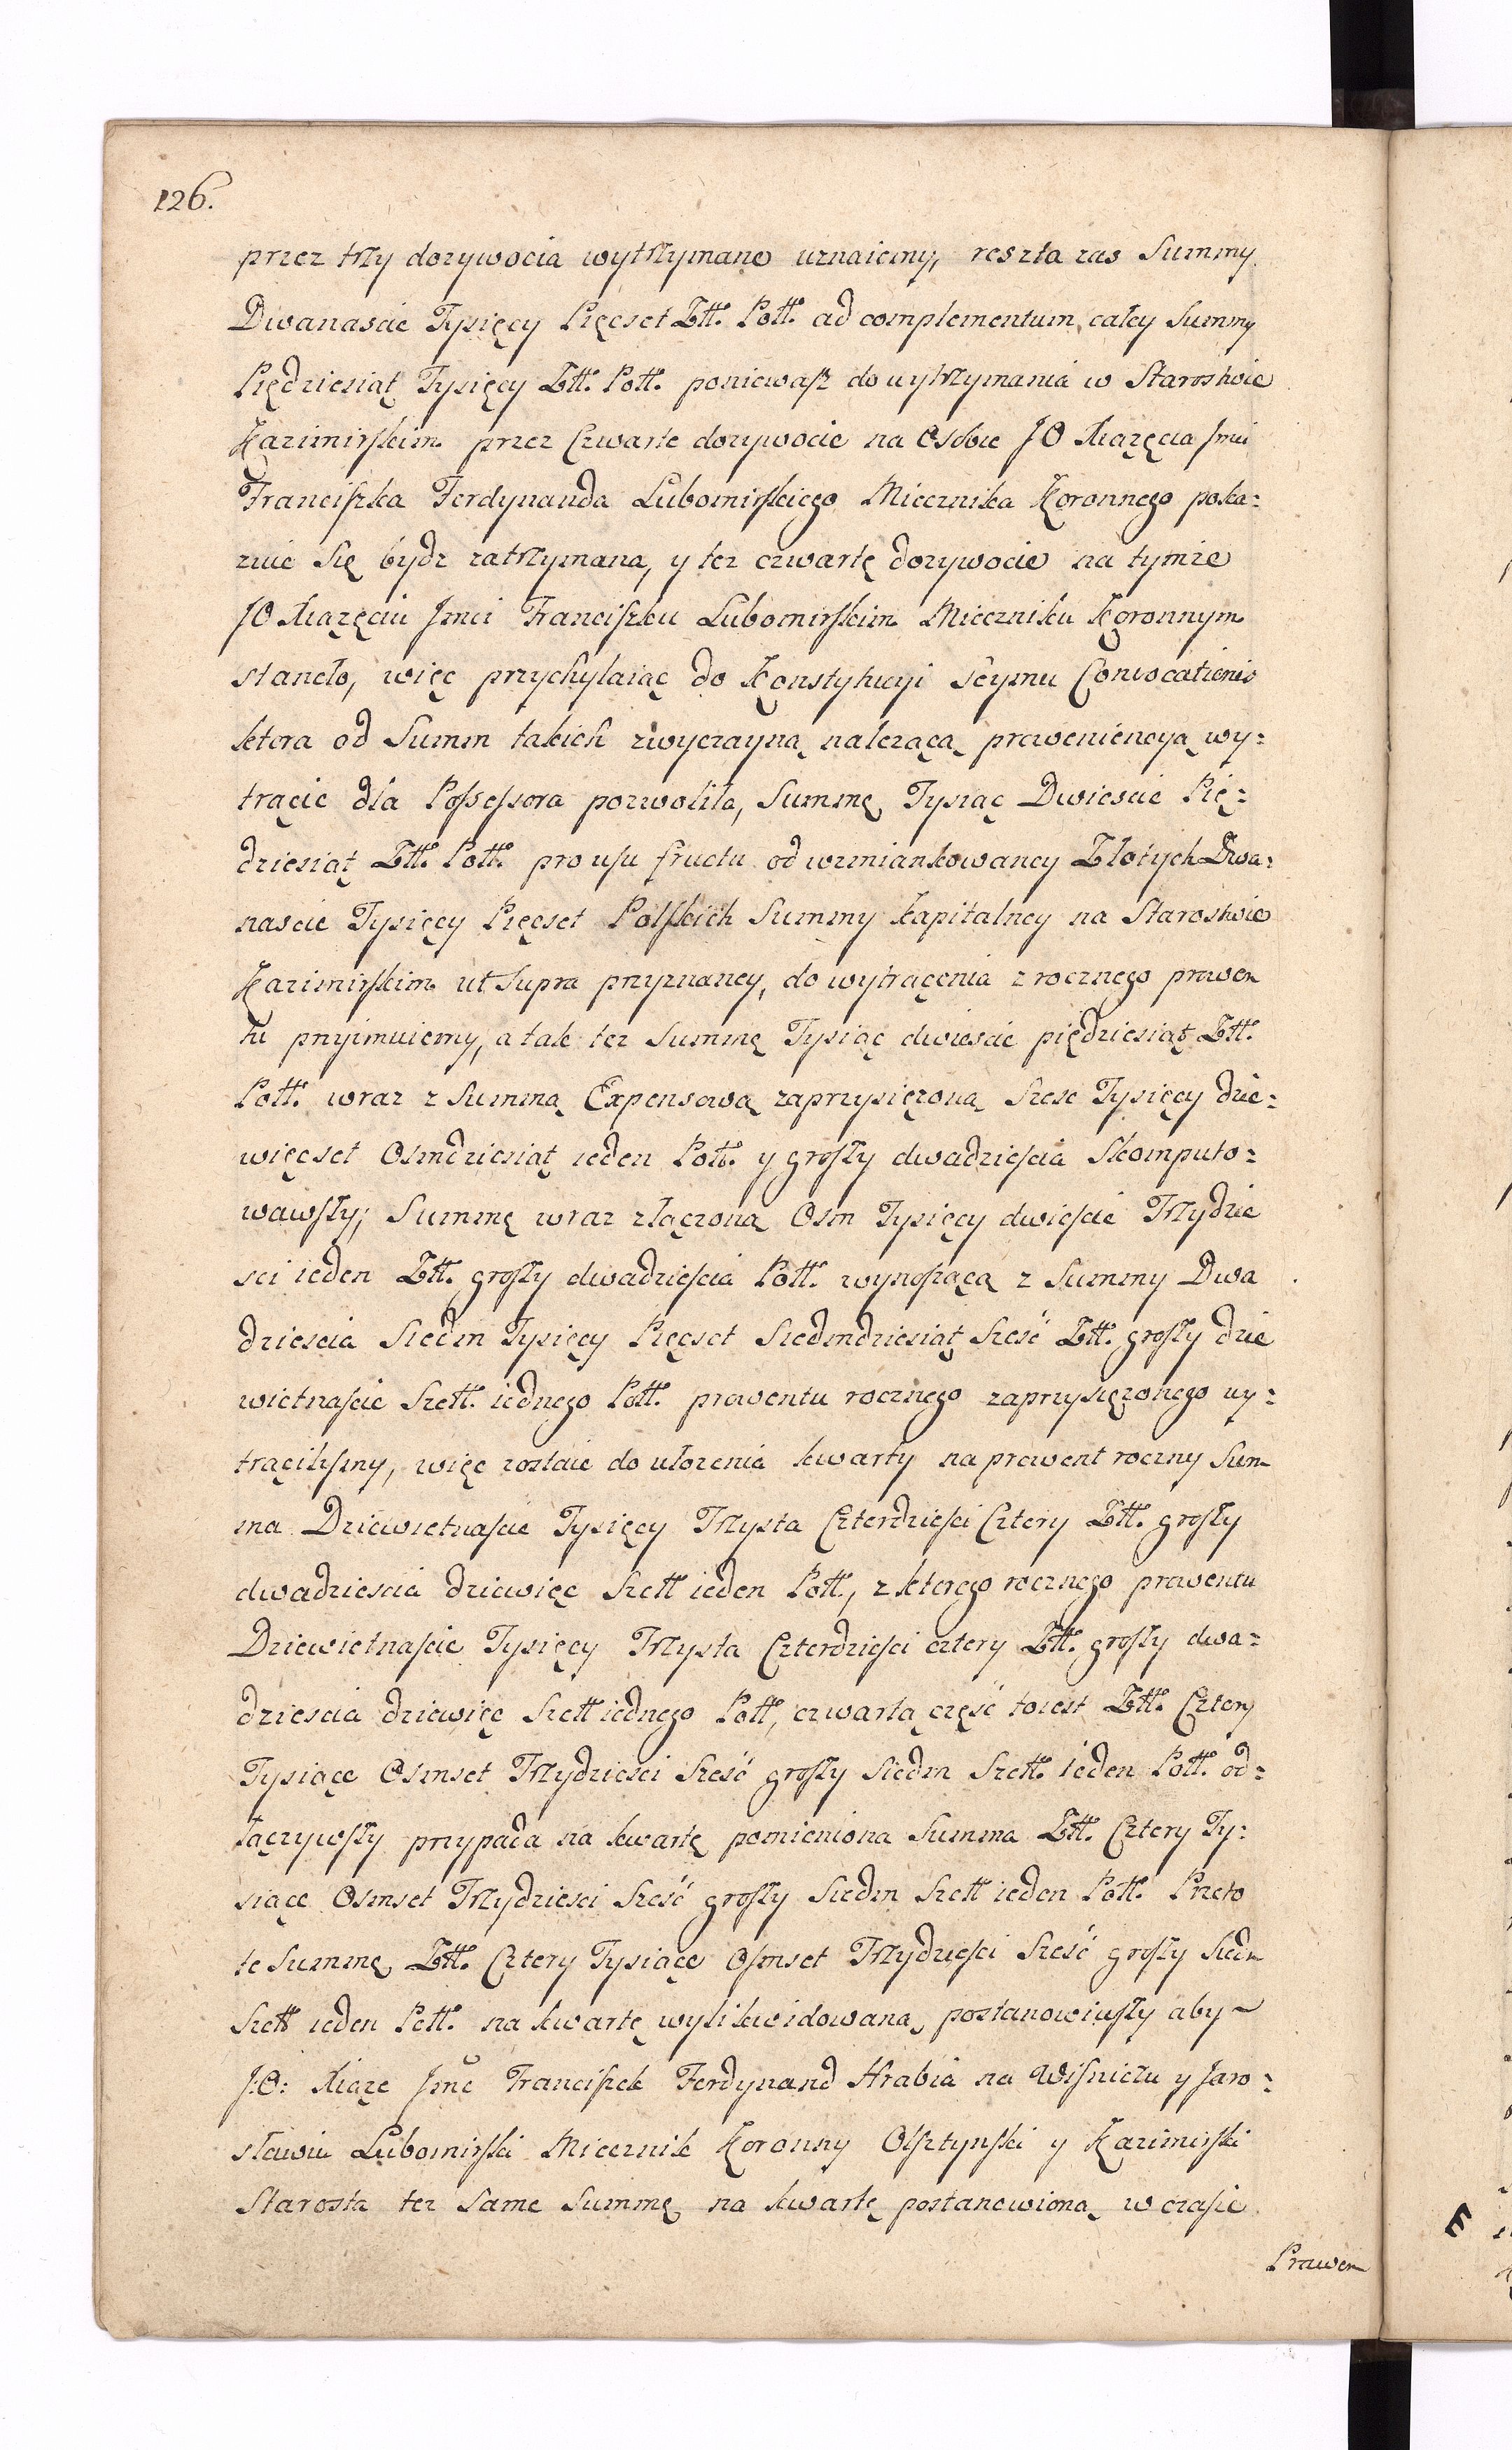 126.
przez trzy dozywocia wytrzymane uznaiemy, reszta zas Summy
Dwanascie Tysięcy Pięcset Złł. Poll. ad complementum całey Summy
Piędziesiąt Tysięcy Złł. Poll. poniewasz do wytrzymania w Starostwie
Kazimirskim przez Czwarte dozywocie na Osobie JO Xiązęcia Jmci
Franciszka Ferdynanda Lubomirskiego Miecznika Koronnego poka=
zuie się bydz zatrzymana, y tez czwartę dozywocie na tymze
JO Xiązęciu Jmci Franciszku Lubomirskim Mieczniku Koronnym
staneło, więc przychylaiąc do Konstytucyi Seymu Convocationis
ktora od Summ takich zwyczayną nalezącą proweniencyą wy=
trącić dla Possessora pozwoliła, Summę Tysiąc Dwiescie Pię=
dziesiąt Złł. Poll. pro usu fructu od wzmiankowaney Złotych Dwa=
nascie Tysięcy Pięcset Polskich Summy Kapitalney na Starostwie
Kazimirskim ut Supra przyznaney, do wytrącenia z rocznego prowen
tu przyimuiemy, a tak tez Summę Tysiąc dwiescie piędziesiąt Złł.
Poll. wraz z Summą Expensową zaprzysięzoną Szesc Tysięcy dzie=
więcset Osmdziesiąt ieden Poll. y groszy dwadziescia Skomputo=
wawszy, Summę wraz złączoną Osm Tysięcy dwiescie Trzydzie
sci ieden Złł. groszy dwadziescia Poll. wynoszącą z Summy Dwa
dziescia Siedm Tysięcy Pięcset Siedmdziesiąt Sześć Złł. groszy dzie
wietnascie Szell. iednego Poll. prowentu rocznego zaprzysięzonego wy=
trącilismy, więc zostaie do ułozenia kwarty na prowent roczny Sum
ma Dziewietnascie Tysięcy Trzysta Czterdziesci Cztery Złł. groszy
dwadziescia dziewięc Szell ieden Poll, z ktorego rocznego prowentu
Dziewietnascie Tysięcy Trzysta Czterdziesci cztery Złł. groszy dwa=
dziescia dziewięc Szell iednego Poll, czwartą część toiest Złł. Cztery
Tysiące Osmset Trzydziesci Sześć groszy Siedm Szell. ieden Poll. od=
łączywszy przypada na kwartę pomieniona Summa Złł. Cztery Ty=
siące Osmset Trzydziesci Sześć groszy Siedm Szell ieden Poll. Przeto
te Summę Złł. Cztery Tysiące Osmset Trzydziesci Sześć groszy Siedm
Szell ieden Poll. na kwartę wylikwidowaną, postanowiwszy aby
J.O: Xiąze Jmć Franciszek Ferdynand Hrabia na Wisniczu y Jaro=
sławiu Lubomirski Miecznik Koronny Olsztynski y Kazimirski
Starosta tez same Summę na kwartę postanowioną w czasie
Prawem